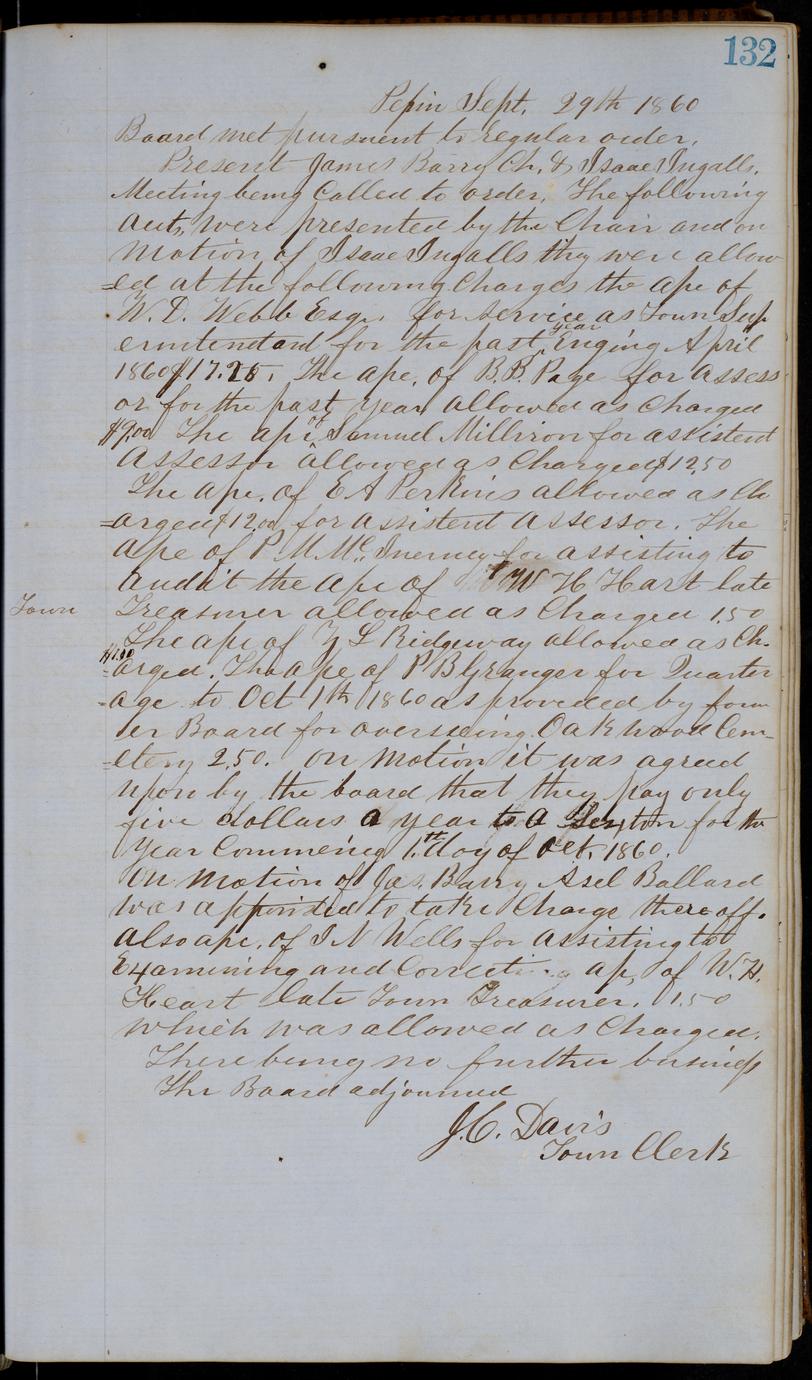 132
Pepin Sept. 29th 1860
Board met pursuent to regular order.
Present James Barry Ch. & Isaac Ingalls.
Meeting being Called to order. The following
acts, were presented by the Chair and on
Motion of Isaac Ingalls they were allow
=ed at the following Charges the apc of
W. D. Webb Esq. for service as Town Sup
erintendand for the past year Enging April
1860 $17.25. The apc. of B.B. Page for assess
or for the past year allowed as Charged
$9.00 The apc of Samuel Millriron for assistent
assessor allowed as Charged $12,50
The apc. of E A Perkins allowed as Ch
=arged $12.00 for assistent assessor. The
apc of P. M. Mc. Inerney for assisting to
audit the apc of W H Hart late
Town Treasurer allowed as Charged 1.50
The apc of L Ridgeway allowed as Ch.
=arged. The apc of P B Granger for Quarter
=age to Oct 1th 1860 as proveded by form
er Board for overseeing Oak wood Cem=
=etery 2,50. on Motion it was agreed
upon by the board that they pay only
five dollars a year to a Sexton for the
year Commencing 1.th day of Oct. 1860.
On Motion of Jas. Barry Asel Ballard
was appointed to take Charge there off.
also apc. of I N Wells for assisting to
Examining and Correcting ap, of W. H.
Heart late Town Treasurer. 1.50
which was allowed as Charged.
There being no further business
The Board adjourned
J. C. Davis
Town Clerk